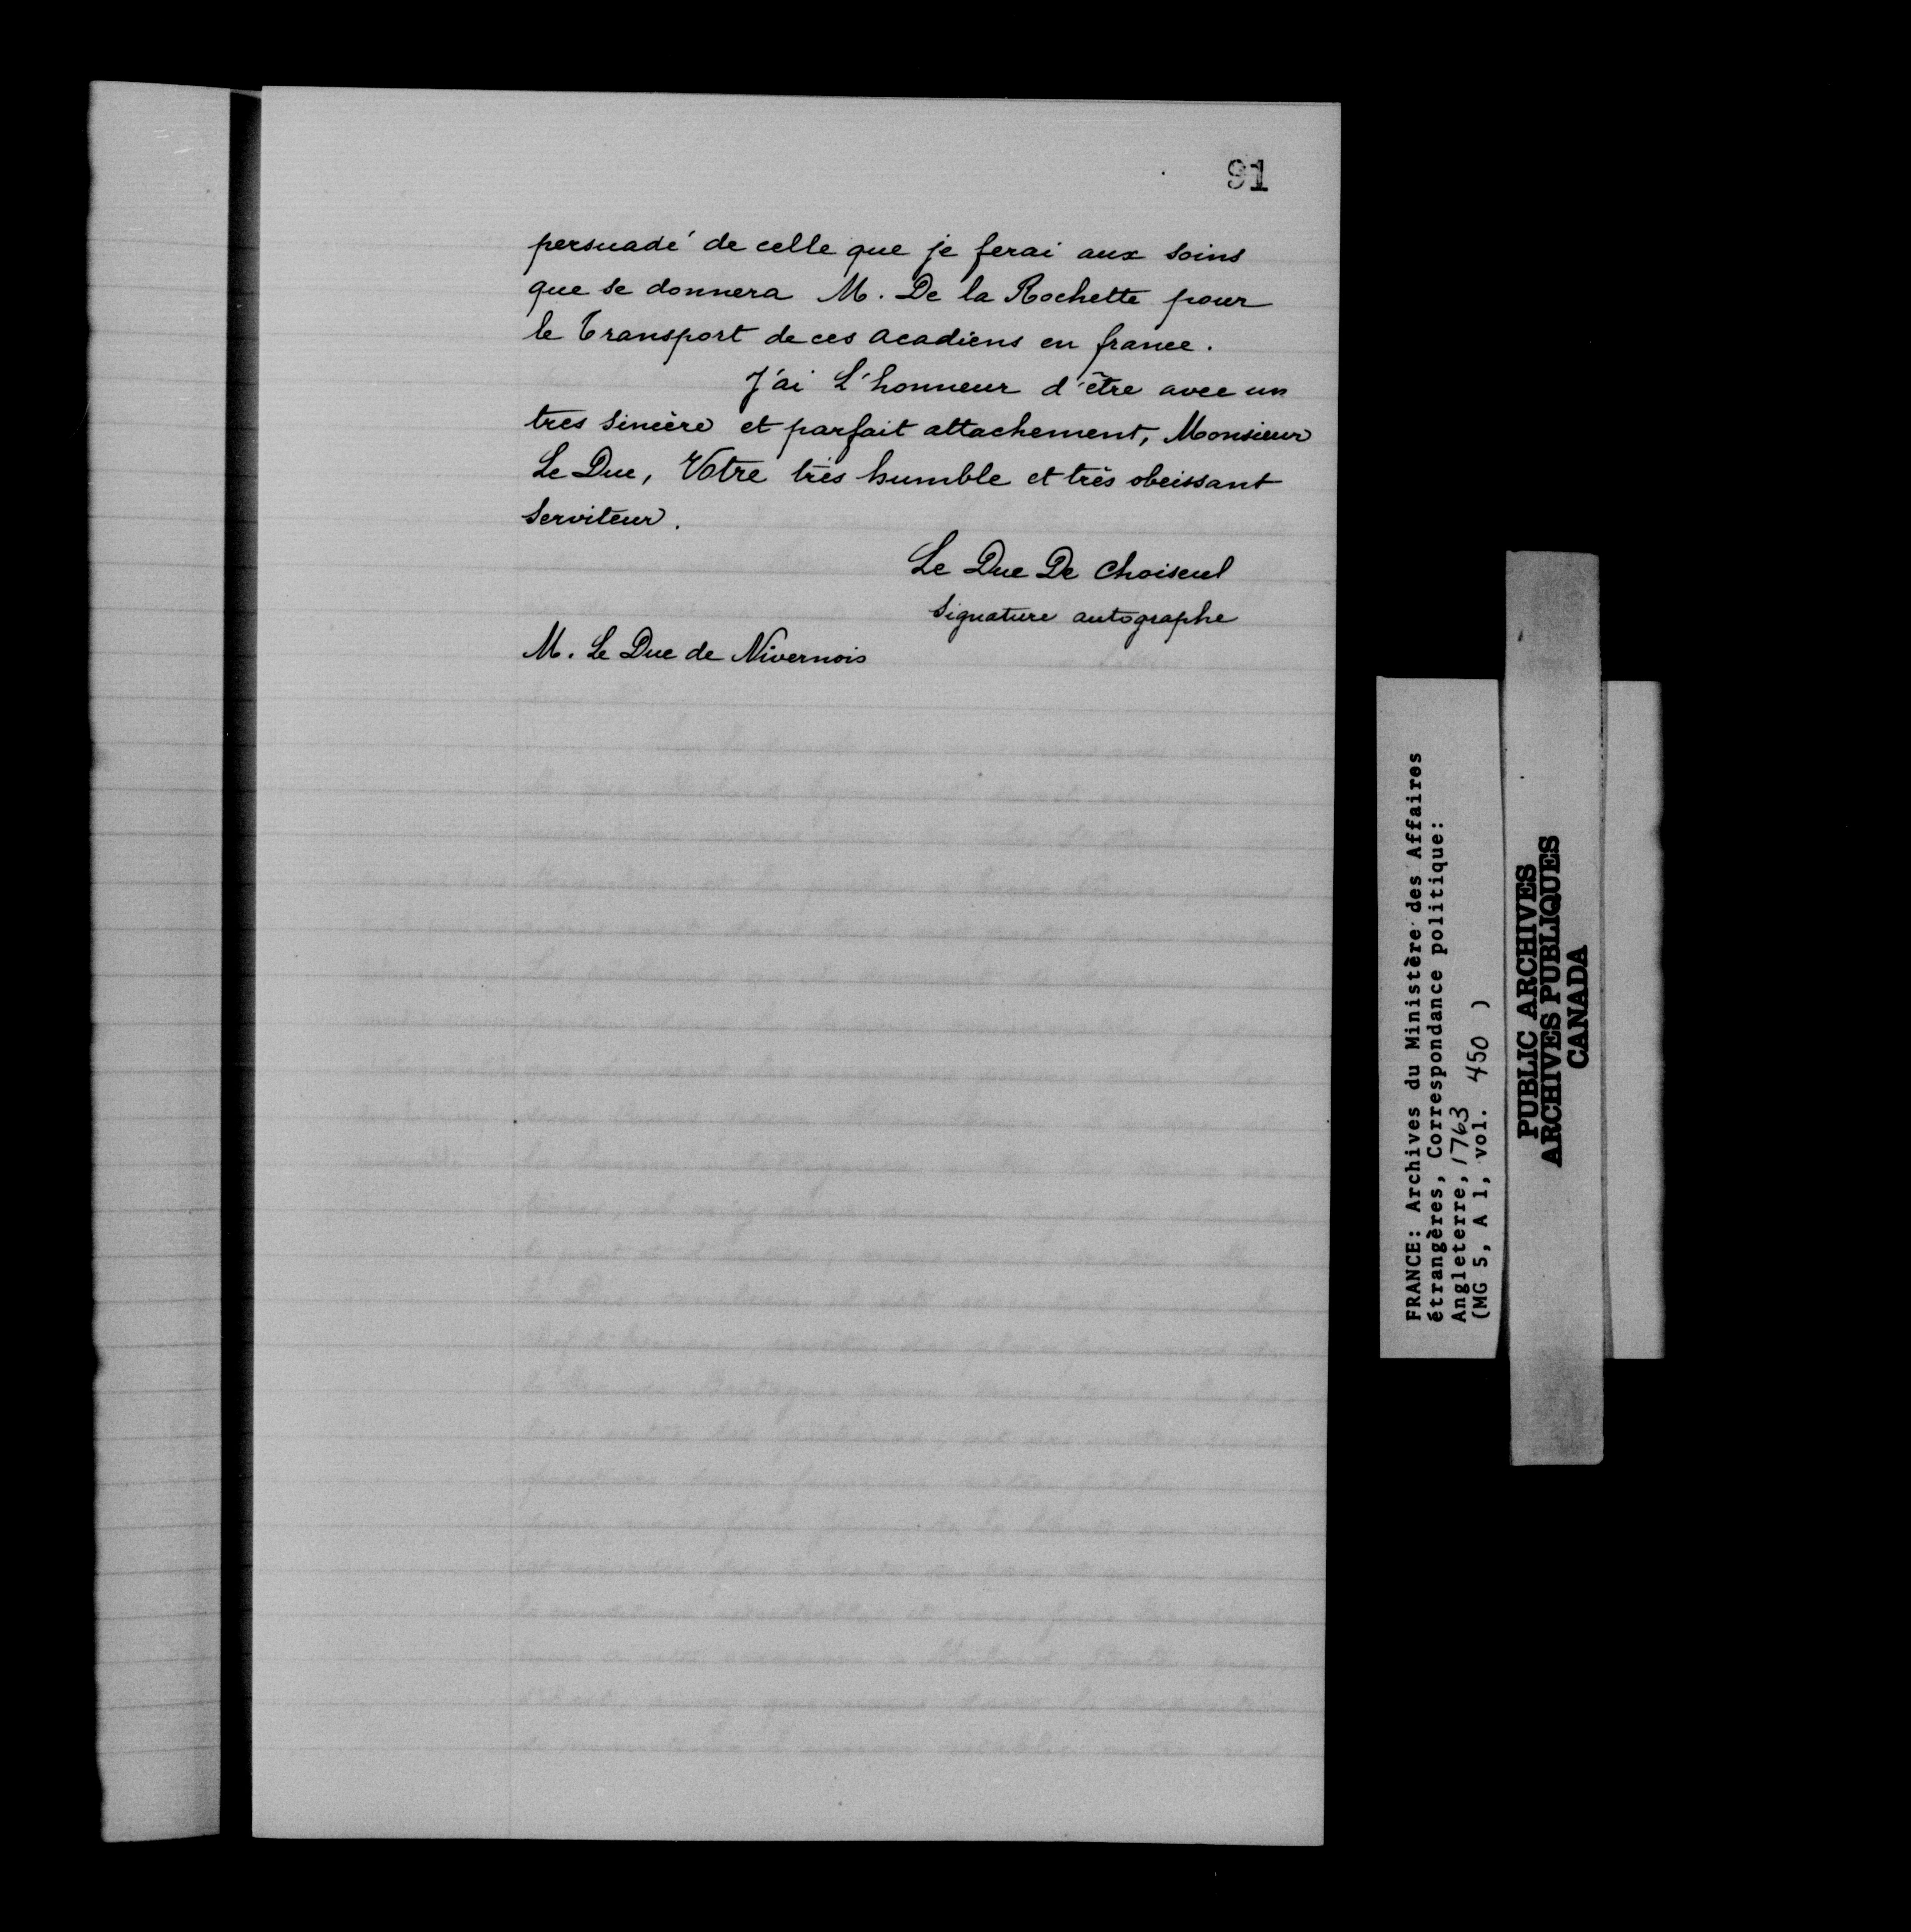 91
persuadé de celle que je ferai aux soins
que se donnera M. De la Rochette pour
le Transport de ces acadiens en france.
J'ai L'honneur d'être avec un
tres sincère et parfait attachement, Monsieur
Le Duc, Votre très humble et très obeissant
serviteur.
Le Duc De Choiseul
signature autographe
M. Le Duc de Nivernois
FRANCE: Archives du Ministère des Affaires
étrangères, Correspondance politique:
Angleterre, 1763
(MG 5, A 1, vol. 450 )
PUBLIC ARCHIVES
ARCHIVES PUBLIQUES
CANADA